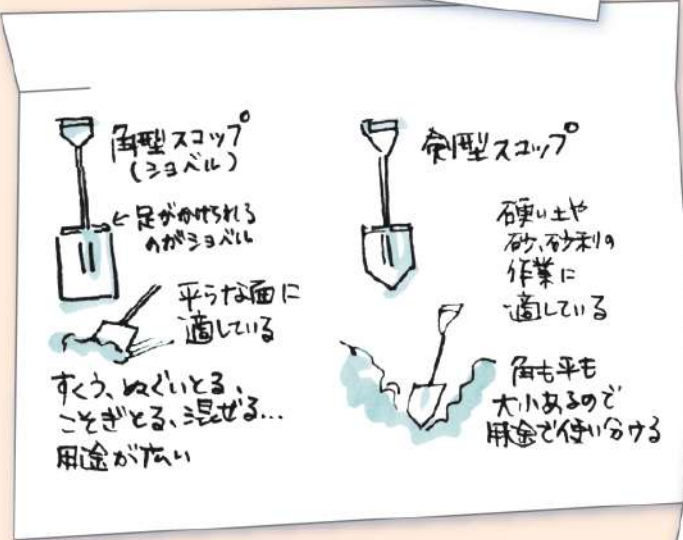 角型スコップ
(ショベル)
←足がかけられる
のがショベル
平らな面に
適している
すくう、ぬぐいとる、
こそぎとる、混ぜる…
用途が広い
剣型スコップ
硬い土や
砂、砂利の
作業に
適している
角も平も
大小あるので
用途で使い分ける